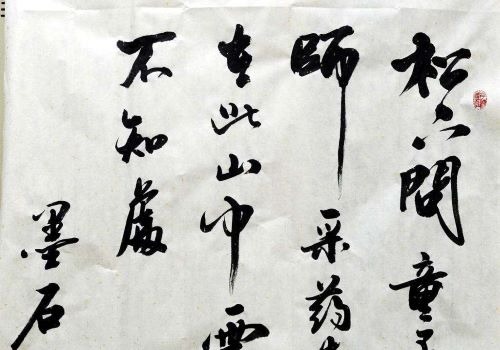 松下問童
師采药
在此山中
不知處
墨石